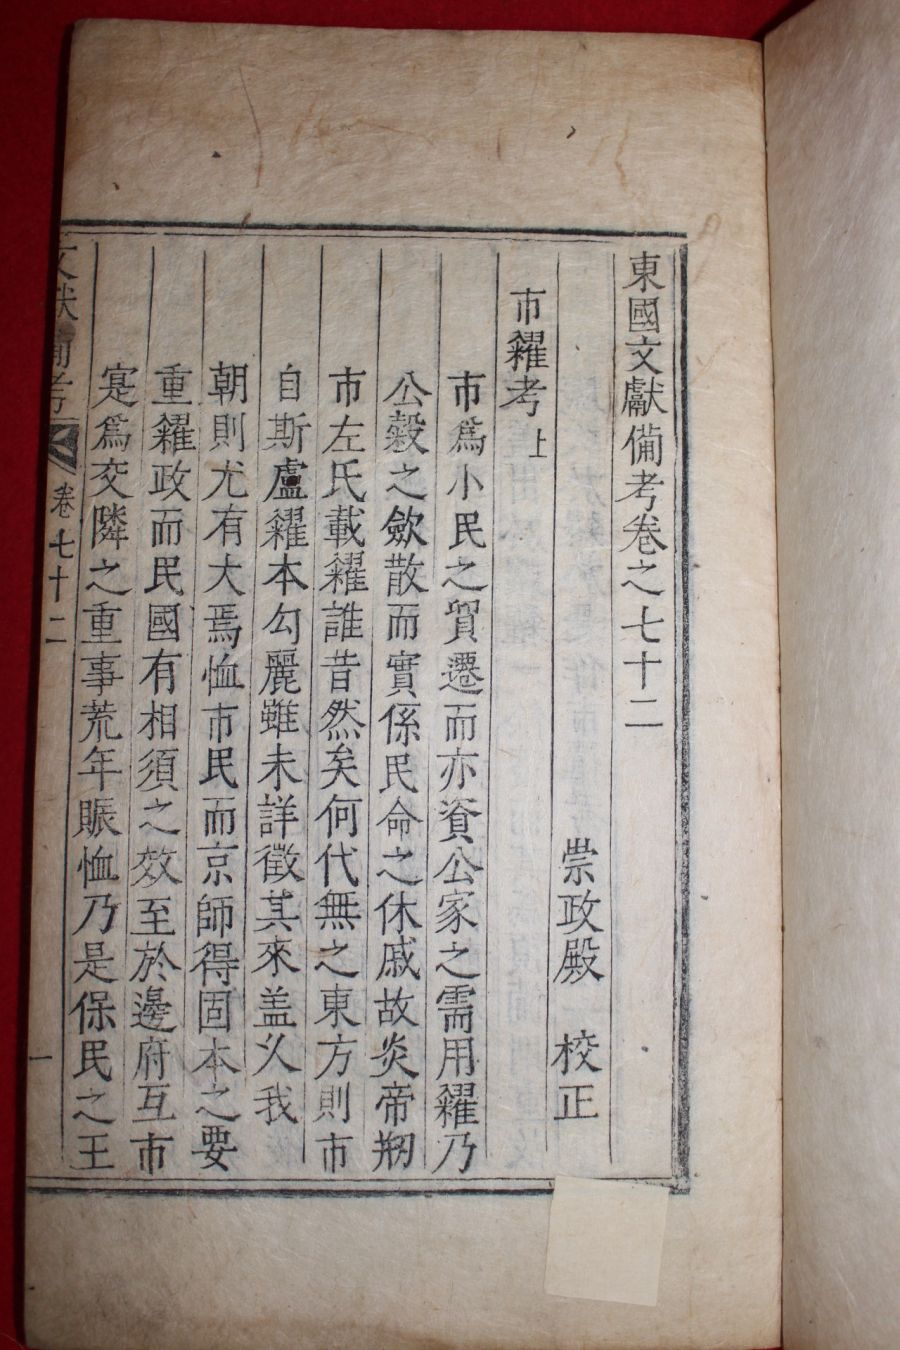 東國文獻備考卷之七十二
崇政殿 校正
市糴考 上
市爲小民之貿遷而亦資公家之需用糴乃
公穀之斂散而實係民命之休戚故炎帝刱
市左氏載糴誰昔然矣何代無之東方則市
自斯盧糴本勾麗雖未詳徵其來盖久我
朝則尤有大焉恤市民而京師得固本之要
重糴政而民國有相須之效至於邊府互市
寔爲交隣之重事荒年賑恤乃是保民之王
文獻備考 卷七十二 一